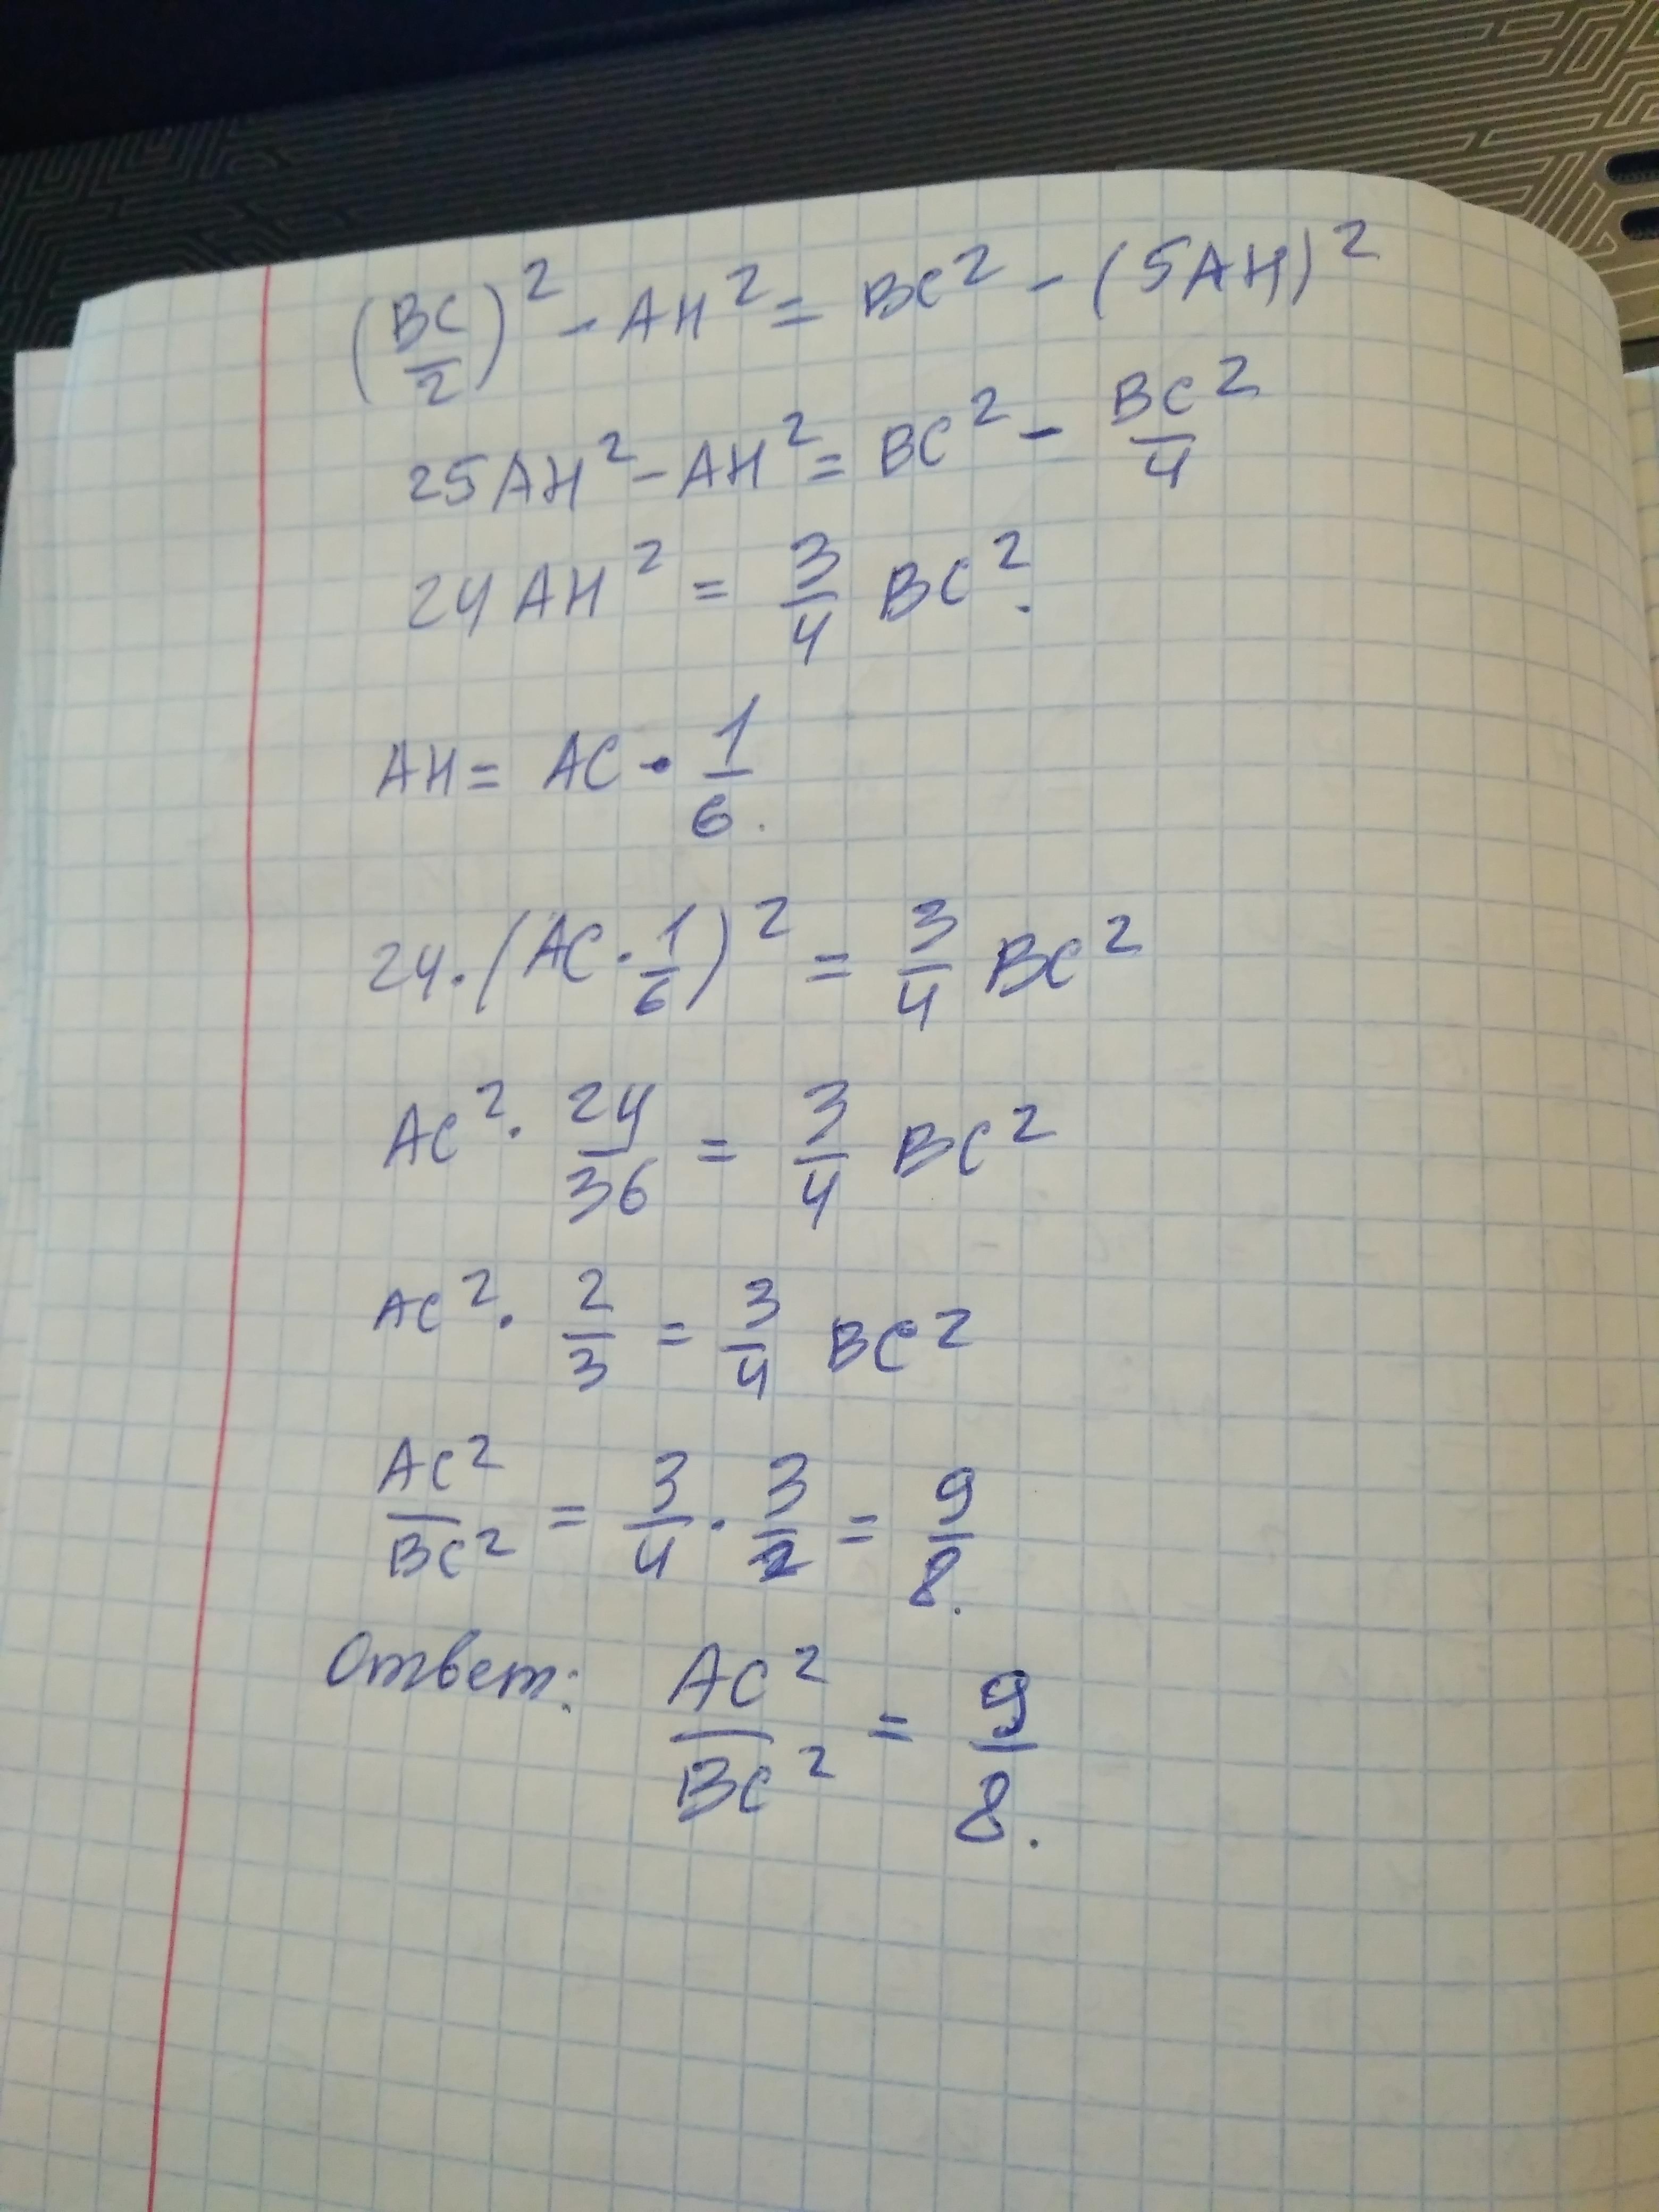 (BC/2)² - AH² = BC² - (5AH)²
25AH² - AH² = BC² - BC²/4
24AH² = 3/4 BC².
AH = AC · 1/6.
24 · (AC · 1/6)² = 3/4 BC²
AC² · 24/36 = 3/4 BC²
AC² · 2/3 = 3/4 BC²
AC²/BC² = 3/4 · 3/2 = 9/8.
Ответ: AC²/BC² = 9/8.